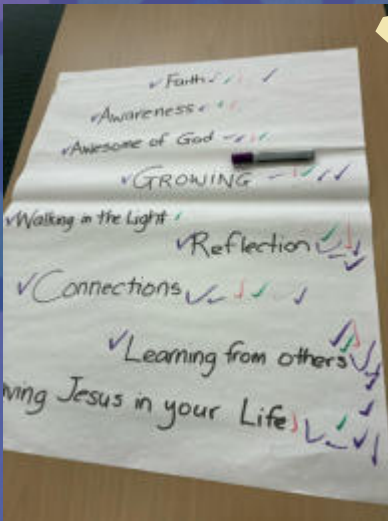 Faith
Awareness
Awesome of God
GROWING
Walking in the Light
Reflection
Connections
Learning from others
ving Jesus in your Life